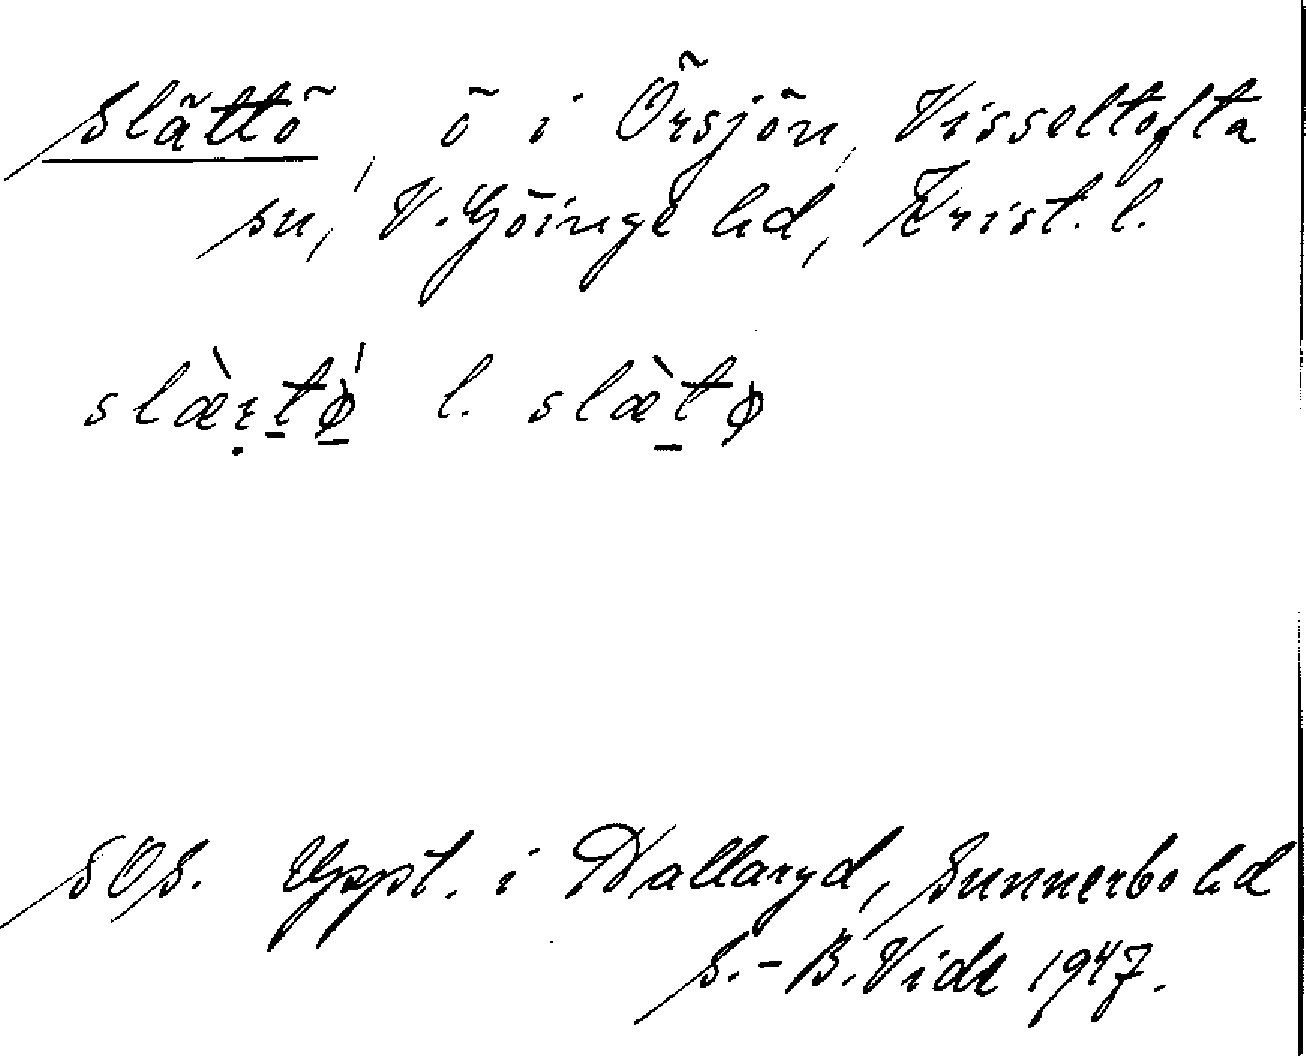 Slättö, ö i Örsjön, Visseltofta
sn, V. Göinge hd, Krist. l.
l.
SOS. Uppt. i Hallaryd, Sunnerbo hd
S.-B. Vide 1947.